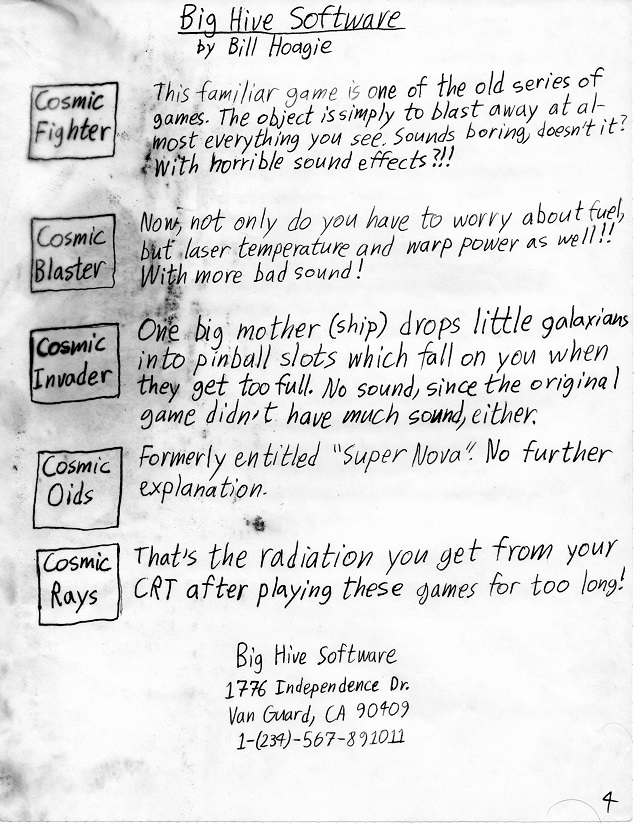 Big Hive Software
by Bill Hoagie
Cosmic
Fighter
This familiar game is one of the old series of
games. The object is simply to blast away at al-
most everything you see. Sounds boring, doesn't it?
With horrible sound effects?!!
Cosmic
Blaster
Now, not only do you have to worry about fuel,
but laser temperature and warp power as well!!
With more bad sound!
Cosmic
Invader
One big mother (ship) drops little galaxians
into pinball slots which fall on you when
they get too full. No sound, since the original
game didn't have much sound, either.
Cosmic
Oids
Formerly entitled "Super Nova". No further
explanation.
Cosmic
Rays
That's the radiation you get from your
CRT after playing these games for too long!
Big Hive Software
1776 Independence Dr.
Van Guard, CA 90409
1-(234)-567-891011
4